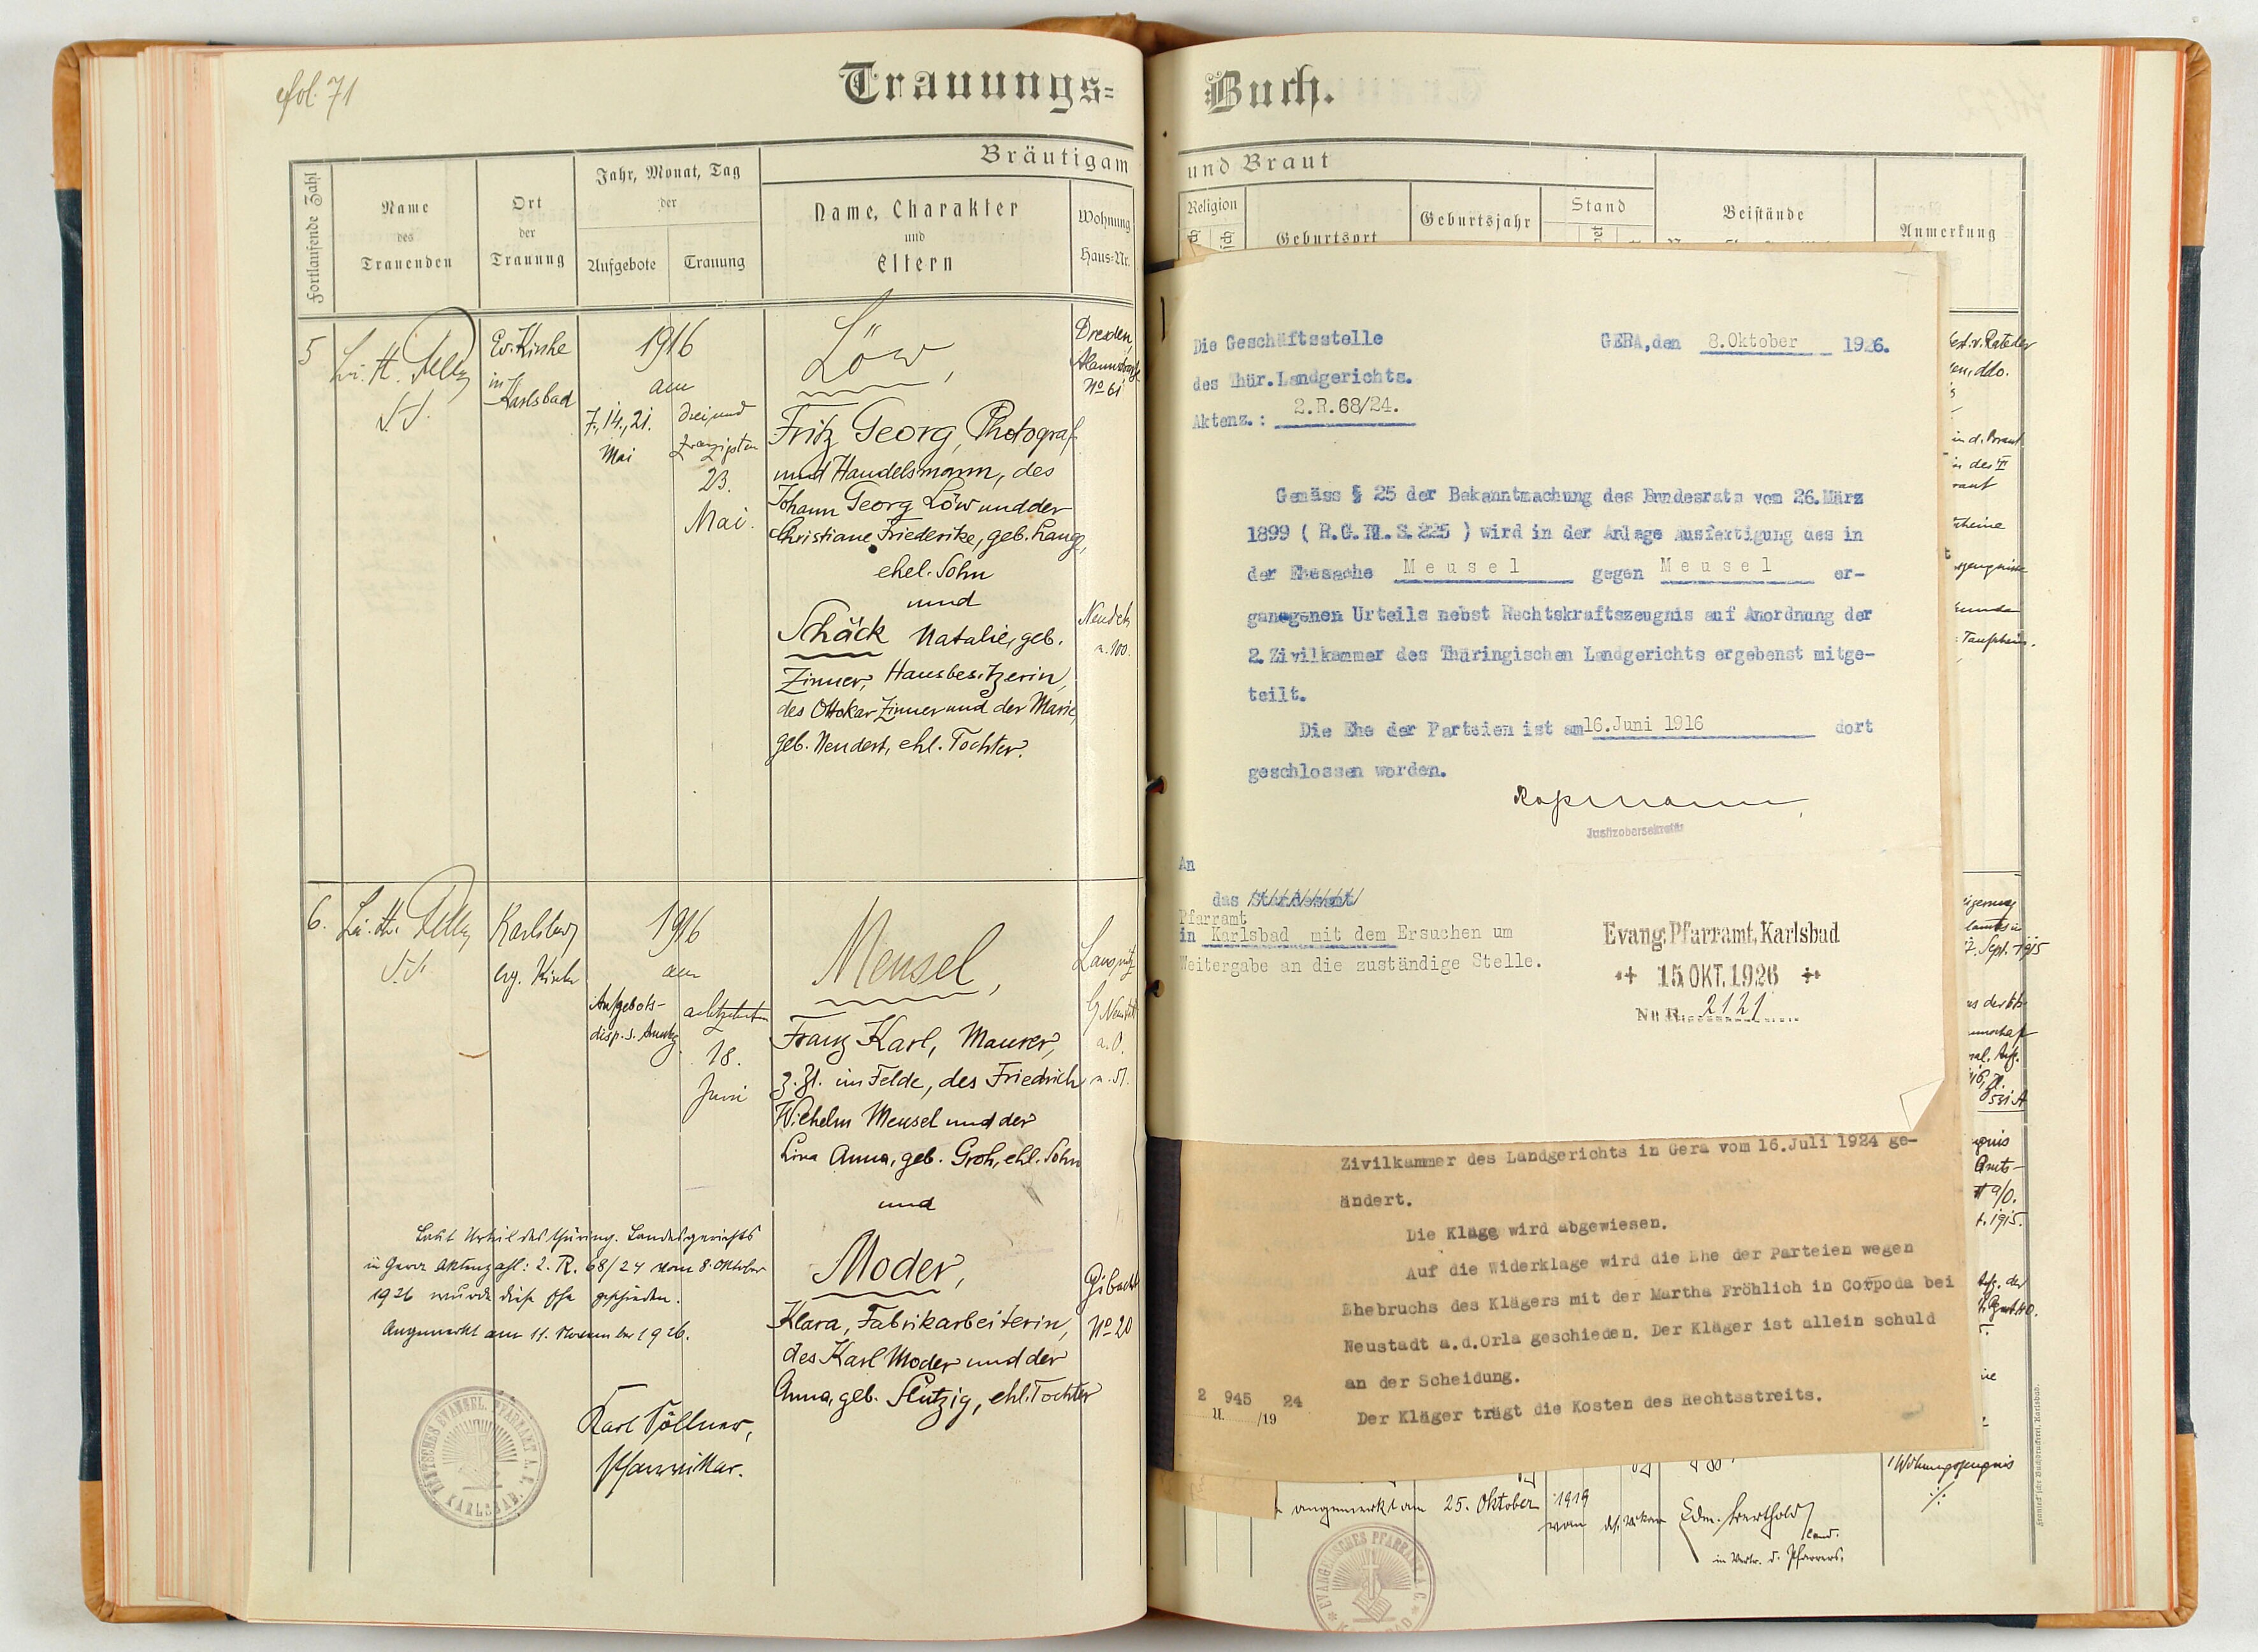 fol. 71
Trauungs=
Fortlaufende Zahl
Name
des
Trauenden
Ort
der
Trauung
Jahr, Monat, Tag
der
Aufgebote
Trauung
Bräutigam
Name, Charakter
und
Eltern
Wohnung
Haus=Nr.
5
Ev. Kirche
in
Karlsbad
1916
am
7., 14., 21.
Mai
drei und
zwanzigsten
23.
Mai.
Löw,
Fritz Georg, Photograf
und Handelsmann, des
Johann Georg Löw und der
Christiane Friederike, geb. Lange,
ehel. Sohn
und
Schäck Natalie, geb.
Zinner, Hausbesitzerin,
des Ottokar Zinner und der Marie,
geb. Neudert, ehl. Tochter.
Dresden,
No 61
Neudek
n. 100.
6.
Karlsbad
ev. Kirche
1916
am
Aufgebots-
disp. s. Anmkg.
achtzehnten
18.
Juni
Meusel,
Franz Karl, Maurer,
z. Zt. im Felde, des Friedrich
Wilhelm Meusel und der
Lina Anna, geb. Groh, ehl. Sohn
und
Moder,
Klara, Fabrikarbeiterin,
des Karl Moder und der
Anna, geb. Slutzig, ehl. Tochter
a. O.
n. 51.
No 20
Laut Urteil des thüring. Landesgerichts
in Gera Aktenzahl: 2. R. 68/24 vom 8. Oktober
1926 wurde diese Ehe geschieden.
Angemerkt am 11. November 1926.
Karl Töllner,
Pfarrvikar.
DEUTSCHES EVANGEL. PFARRAMT A. B. KARLSBAD.
Buch.
und Braut
Religion
Geburtsort
Geburtsjahr
Stand
Beistände
Anmerkung
Die Geschäftsstelle
des Thür. Landgerichts.
Aktenz.: 2.R.68/24.
GERA, den 8.Oktober 1926.
Gemäss § 25 der Bekanntmachung des Bundesrats vom 26.März
1899 ( R.G.Bl.S.225 ) wird in der Anlage Ausfertigung des in
der Ehesache Meusel gegen Meusel er-
ganegenen Urteils nebst Rechtskraftszeugnis auf Anordnung der
2.Zivilkammer des Thüringischen Landgerichts ergebenst mitge-
teilt.
Die Ehe der Parteien ist am 16.Juni 1916 dort
geschlossen worden.
Justizobersekretär
An
das Standesamt
Pfarramt
in Karlsbad mit dem Ersuchen um
Weitergabe an die zuständige Stelle.
Evang. Pfarramt, Karlsbad
15 OKT. 1926
No R. 2121
Zivilkammer des Landgerichts in Gera vom 16.Juli 1924 ge-
ändert.
Die Klage wird abgewiesen.
Auf die Widerklage wird die Ehe der Parteien wegen
Ehebruchs des Klägers mit der Martha Fröhlich in Corpoda bei
Neustadt a.d.Orla geschieden. Der Kläger ist allein schuld
an der Scheidung.
Der Kläger trägt die Kosten des Rechtsstreits.
2 U. 945 /19 24
angemerkt am 25. Oktober 1919
vom
Edm. Berthold
cand.
in Vertr. d. Pfarrers.
Wohnungszeugnis
EVANGELISCHES PFARRAMT A. C.